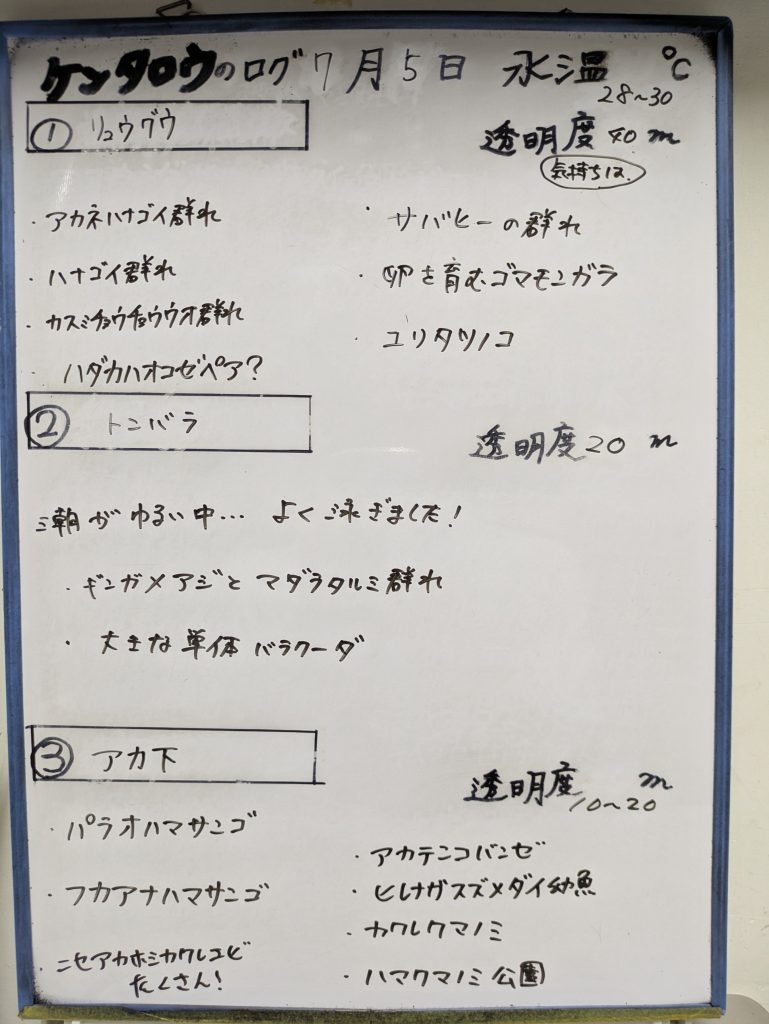 ケンタロウのログ 7月5日 水温 28~30 ℃
① リュウグウ
透明度 40 m
気持ちは、
・アカネハナゴイ群れ
・ハナゴイ群れ
・カスミチョウチョウウオ群れ
・ハダカハオコゼペア?
・サバヒーの群れ
・卵を育むゴマモンガラ
・ユリタツノコ
② トンバラ
透明度 20 m
潮がゆるい中… よく泳ぎました!
・ギンガメアジとマダラタルミ群れ
・大きな単体バラクーダ
③ アカ下
透明度 10~20 m
・パラオハマサンゴ
・フカアナハマサンゴ
・ニセアカホシカクレエビ
たくさん!
・アカテンコバンゼ
・ヒレナガスズメダイ幼魚
・カクレクマノミ
・ハマクマノミ公園